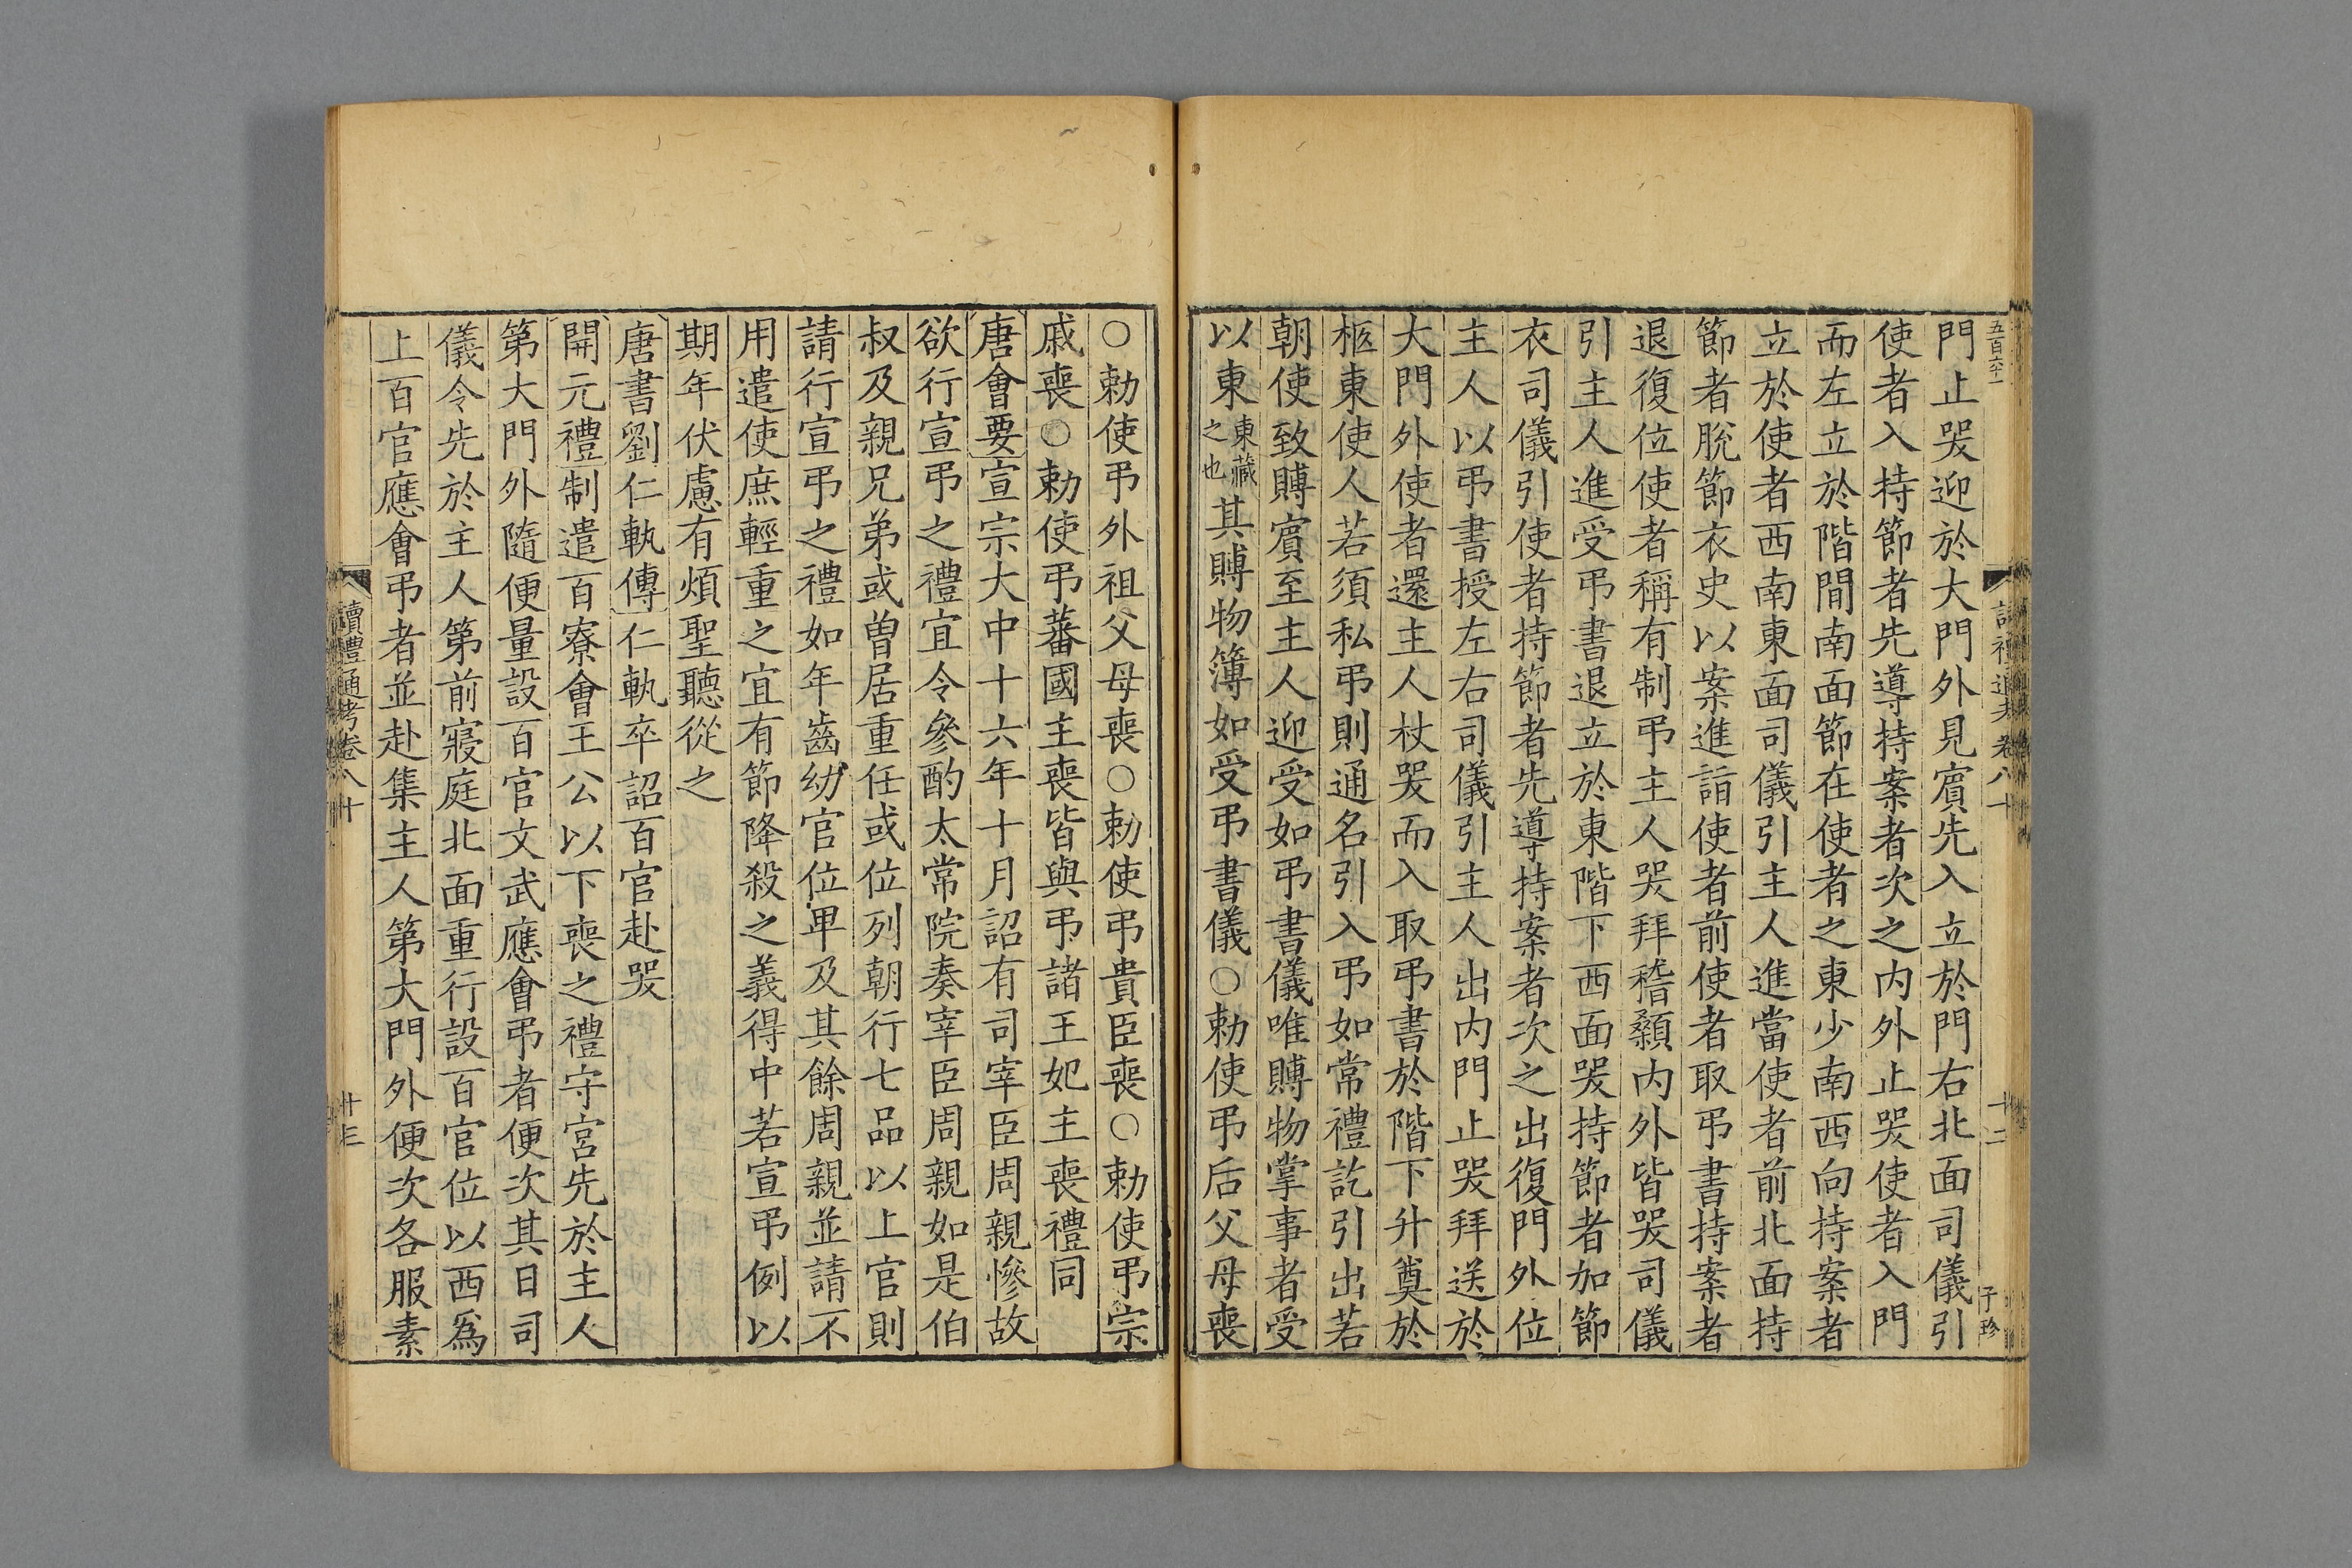 五百六十一
門止哭迎於大門外見賓先入立於門右北面司儀引
使者入持節者先導持案者次之内外止哭使者入門
而左立於階間南面節在使者之東少南西向持案者
立於使者西南東面司儀引主人進當使者前北面持
節者脫節衣史以案進詣使者前使者取弔書持案者
退復位使者稱有制弔主人哭拜稽顙内外皆哭司儀
引主人進受弔書退立於東階下西面哭持節者加節
衣司儀引使者持節者先導持案者次之出復門外位
主人以弔書授左右司儀引主人出内門止哭拜送於
大門外使者還主人杖哭而入取弔書於階下升奠於
柩東使人若須私弔則通名引入弔如常禮訖引出若
朝使致賻賓至主人迎受如弔書儀唯賻物掌事者受
以東東藏之也其賻物簿如受弔書儀○勅使弔后父母喪
卷八十
十二
子珍
○勅使弔外祖父母喪○勅使弔貴臣喪○勅使弔宗
戚喪○勅使弔蕃國主喪皆與弔諸王妃主喪禮同
唐會要宣宗大中十六年十月詔有司宰臣周親慘故
欲行宣弔之禮宜令參酌太常院奏宰臣周親如是伯
叔及親兄弟或曽居重任或位列朝行七品以上官則
請行宣弔之禮如年齒幼官位卑及其餘周親並請不
用遣使庶輕重之宜有節降殺之義得中若宣弔例以
期年伏慮有煩聖聽從之
唐書劉仁軌傳仁軌卒詔百官赴哭
開元禮制遣百寮會王公以下喪之禮守宮先於主人
第大門外隨便量設百官文武應會弔者便次其日司
儀令先於主人第前寢庭北面重行設百官位以西爲
上百官應會弔者並赴集主人第大門外便次各服素
讀禮通考卷八十
廿三